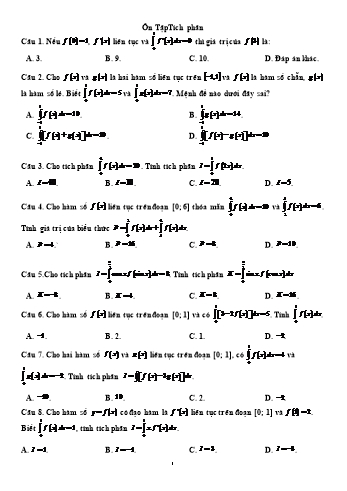 Ôn TậpTích phân
Câu 1. Nếu f(0)=1, f'(x) liên tục và thì giá trị của f(3) là:
A. 3. B. 9. C. 10. D. Đáp án khác.
Câu 2. Cho f(x) và g(x) là hai hàm số liên tục trên [-1,1] và f(x) là hàm số chẵn, g(x)
là hàm số lẻ. Biết ∫f(x)dx=5 và ∫g(x)dx=7. Mệnh đề nào dưới đây sai?
A. ∫f(x)dx=10. B. ∫g(x)dx=14.
C. ∫[f(x)+g(x)]dx=10. D. ∫[f(x)-g(x)]dx=10
Câu 3. Cho tích phân. Tính tích phân
A. I=40. B. C. I=20. D. I=5.
Câu 4. Cho hàm số f(x) liên tục trên đoạn [0; 6] thỏa mãn ∫f(x)dx=10 và ∫f(x)dx=6.
Tính giá trị của biểu thức P=∫f(x)dx+∫f(x)dx.
A. P=4. B. P=16. C. P=8. D. P=10.
Câu 5.Cho tích phân I=∫cosx.f(sinx)dx=8. Tính tích phân K=∫sinx.f(cosx)dx
A. K=-8. B. K=4. C. K=8. D. K=16.
Câu 6. Cho hàm số f(x) liên tục trên đoạn [0; 1] và có ∫[3-2f(x)]dx=5. Tính ∫f(x)dx.
A. -1. B. 2. C. 1. D. -2.
Câu 7. Cho hai hàm số f(x) và g(x) liên tục trên đoạn [0; 1], có ∫f(x)dx=4 và
∫g(x)dx=-2. Tính tích phân I=∫[f(x)-3g(x)]dx.
A. -10. B. 10. C. 2. D. -2.
Câu 8. Cho hàm số y=f(x) có đạo hàm là f'(x) liên tục trên đoạn [0; 1] và
Biết tích phân I=∫x.f'(x)dx.
A. I=1. B. I=-1. C. I=3. D. I=-3.
1